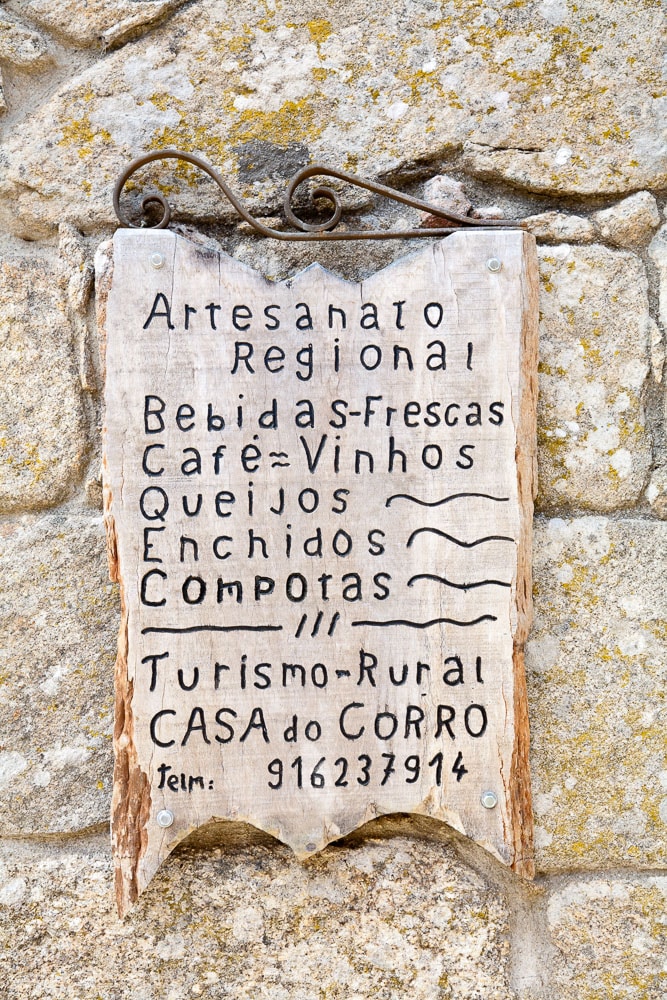 Artesanato
Regional
Bebidas-Frescas
Café=Vinhos
Queijos
Enchidos
Compotas
///
Turismo-Rural
CASA do CORRO
Telm: 916237914